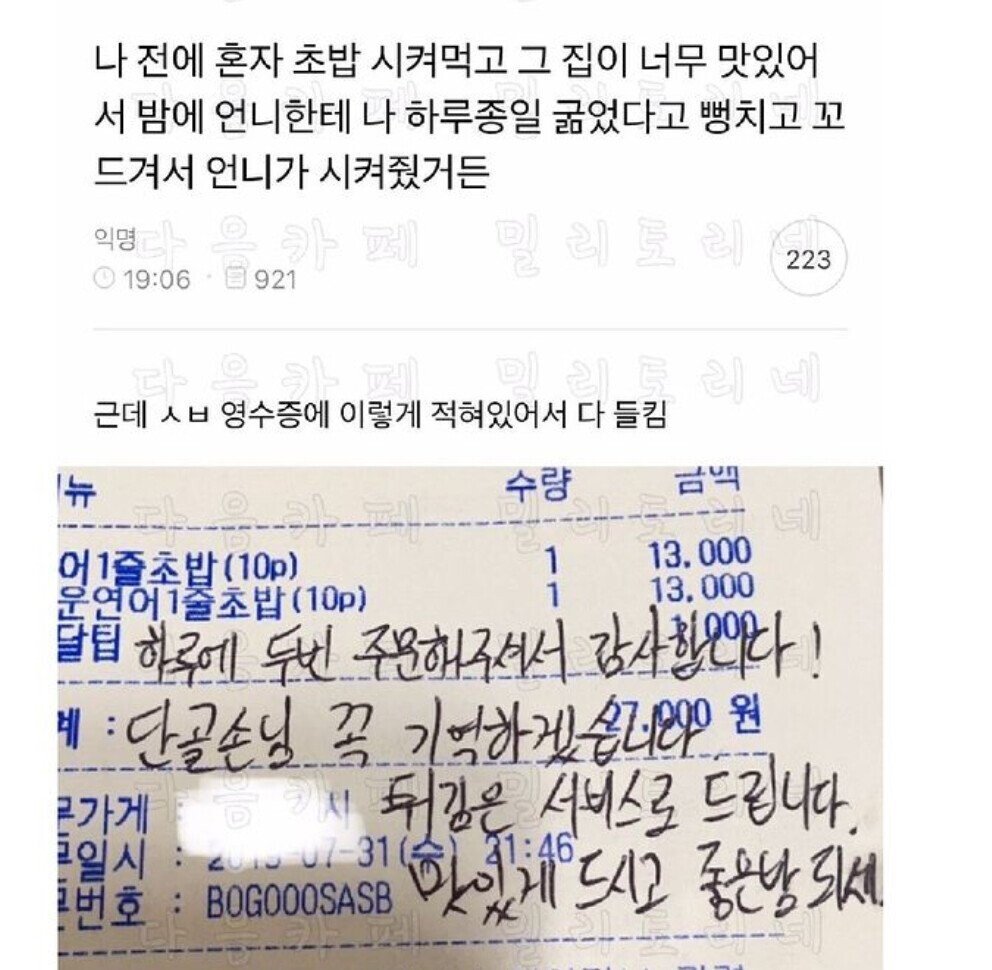 나 전에 혼자 초밥 시켜먹고 그 집이 너무 맛있어
서 밤에 언니한테 나 하루종일 굶었다고 뻥치고 꼬
드겨서 언니가 시켜줬거든
익명
19:06 · 921
223
다음카페 밀리토리네
다음카페 밀리토리네
근데 ㅅㅂ 영수증에 이렇게 적혀있어서 다 들킴
뉴 수량 금액
다음카페 밀리토리네
어1줄초밥(10p) 1 13.000
운연어1줄초밥(10p) 1 13.000
달팁 000
하루에 두번 주문해주셔서 감사합니다!
계 : 27.000 원
단골손님 꼭 기억하겠습니다.
가게 : 시
튀김은 서비스로 드립니다.
일시 : 07-31(수) 21:46
맛있게 드시고 좋은밤 되세
번호 : B0G000SASB